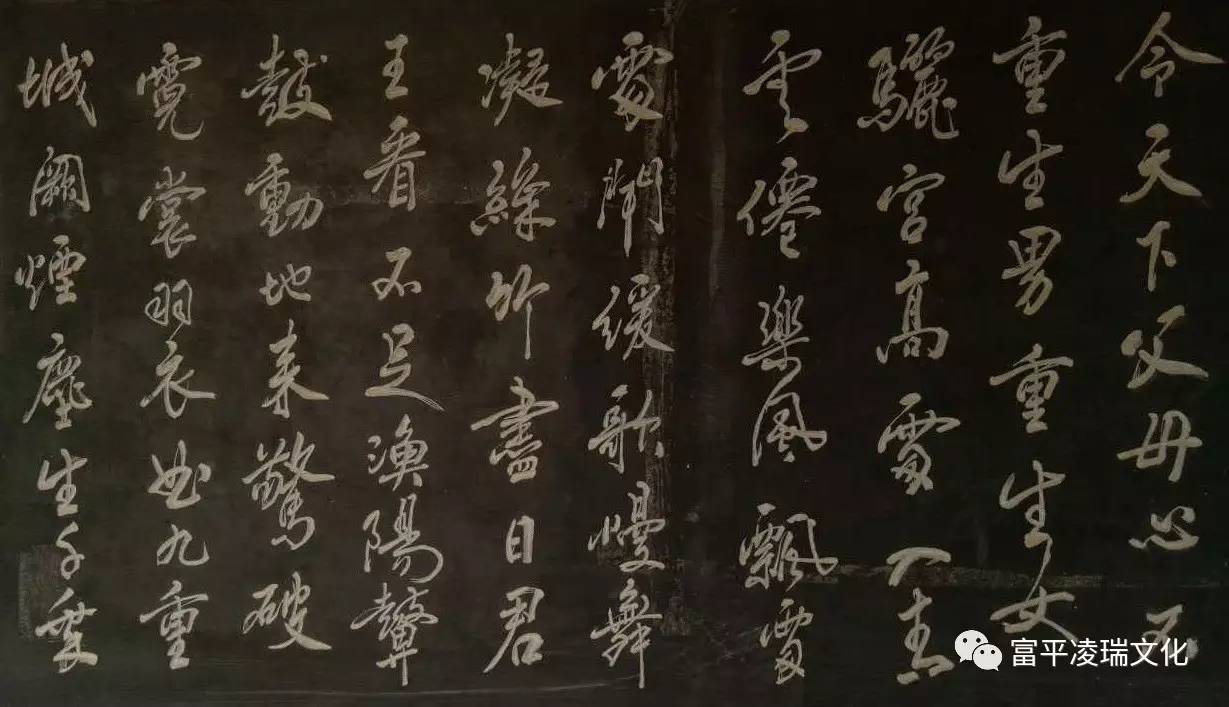 令天下父母心不
重生男重生女
驪宮高處入青
雲僊樂風飄處
處聞緩歌慢舞
凝絲竹盡日君
王看不足漁陽鼙
鼓動地来驚破
霓裳羽衣曲九重
城闕煙塵生千乗
富平凌瑞文化